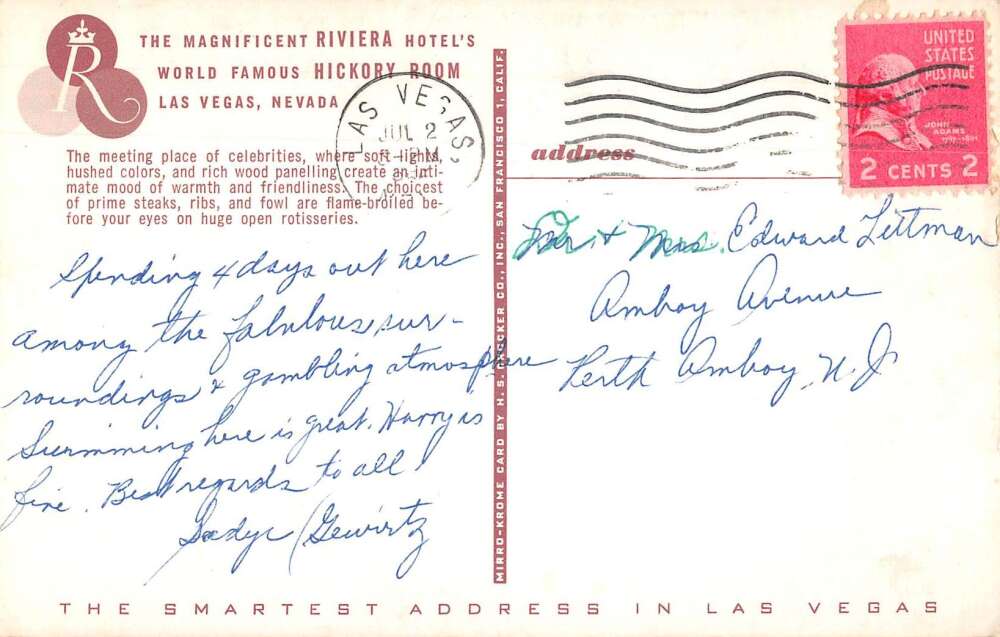 R
THE MAGNIFICENT RIVIERA HOTEL'S
WORLD FAMOUS HICKORY ROOM
LAS VEGAS, NEVADA
The meeting place of celebrities, where soft lights,
hushed colors, and rich wood panelling create an inti-
mate mood of warmth and friendliness. The choicest
of prime steaks, ribs, and fowl are flame-broiled be-
fore your eyes on huge open rotisseries.
Spending 4 days out here
among the fabulous sur-
roundings & gambling atmosphere
Swimming here is great. Harry is
fine. Best regards to all
Sadye (Gewirtz
MIRRO-KROME CARD BY H. S. CROCKER CO., INC., SAN FRANCISCO 1, CALIF.
LAS VEGAS,
JUL 2
PM
UNITED
STATES
POSTAGE
JOHN
ADAMS
1797-1801
2 CENTS 2
address
& Mrs. Edward Littman
Amboy Avenue
Perth Amboy, N. J
THE SMARTEST ADDRESS IN LAS VEGAS